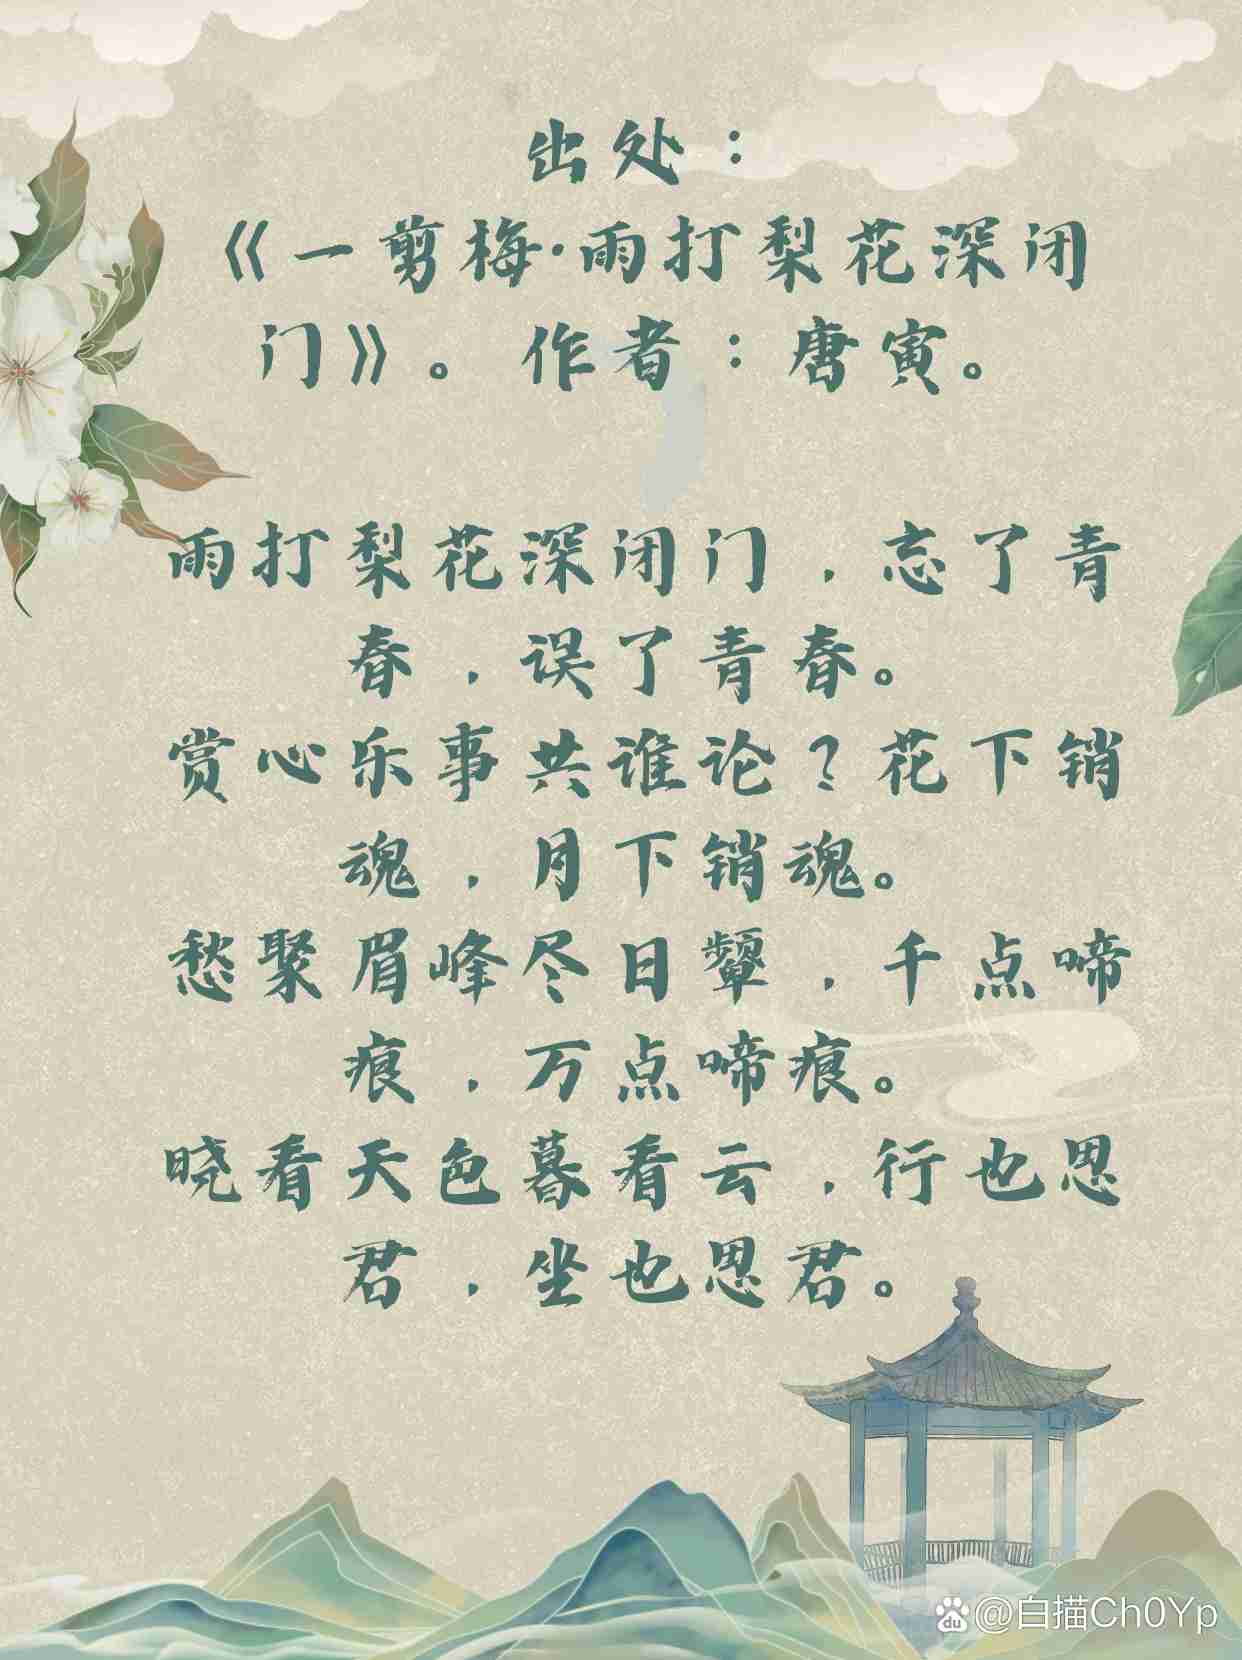 出处：
《一剪梅·雨打梨花深闭
门》。作者：唐寅。
雨打梨花深闭门，忘了青
春，误了青春。
赏心乐事共谁论？花下销
魂，月下销魂。
愁聚眉峰尽日颦，千点啼
痕，万点啼痕。
晓看天色暮看云，行也思
君，坐也思君。
du @白描Ch0Yp